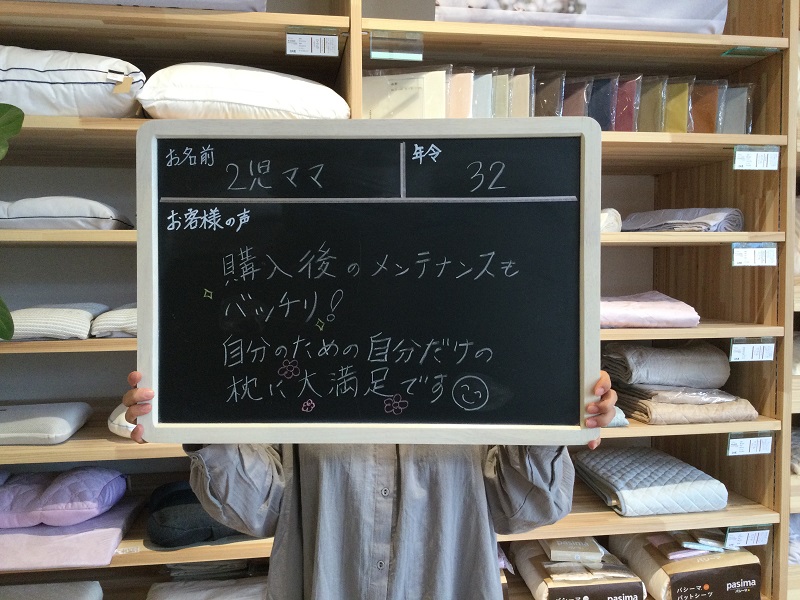 お名前
2児ママ
年令
32
お客様の声
購入後のメンテナンスも
バッチリ!
自分のための自分だけの
枕に大満足です
パシーマの
パットシーツ
pasima
パシーマ